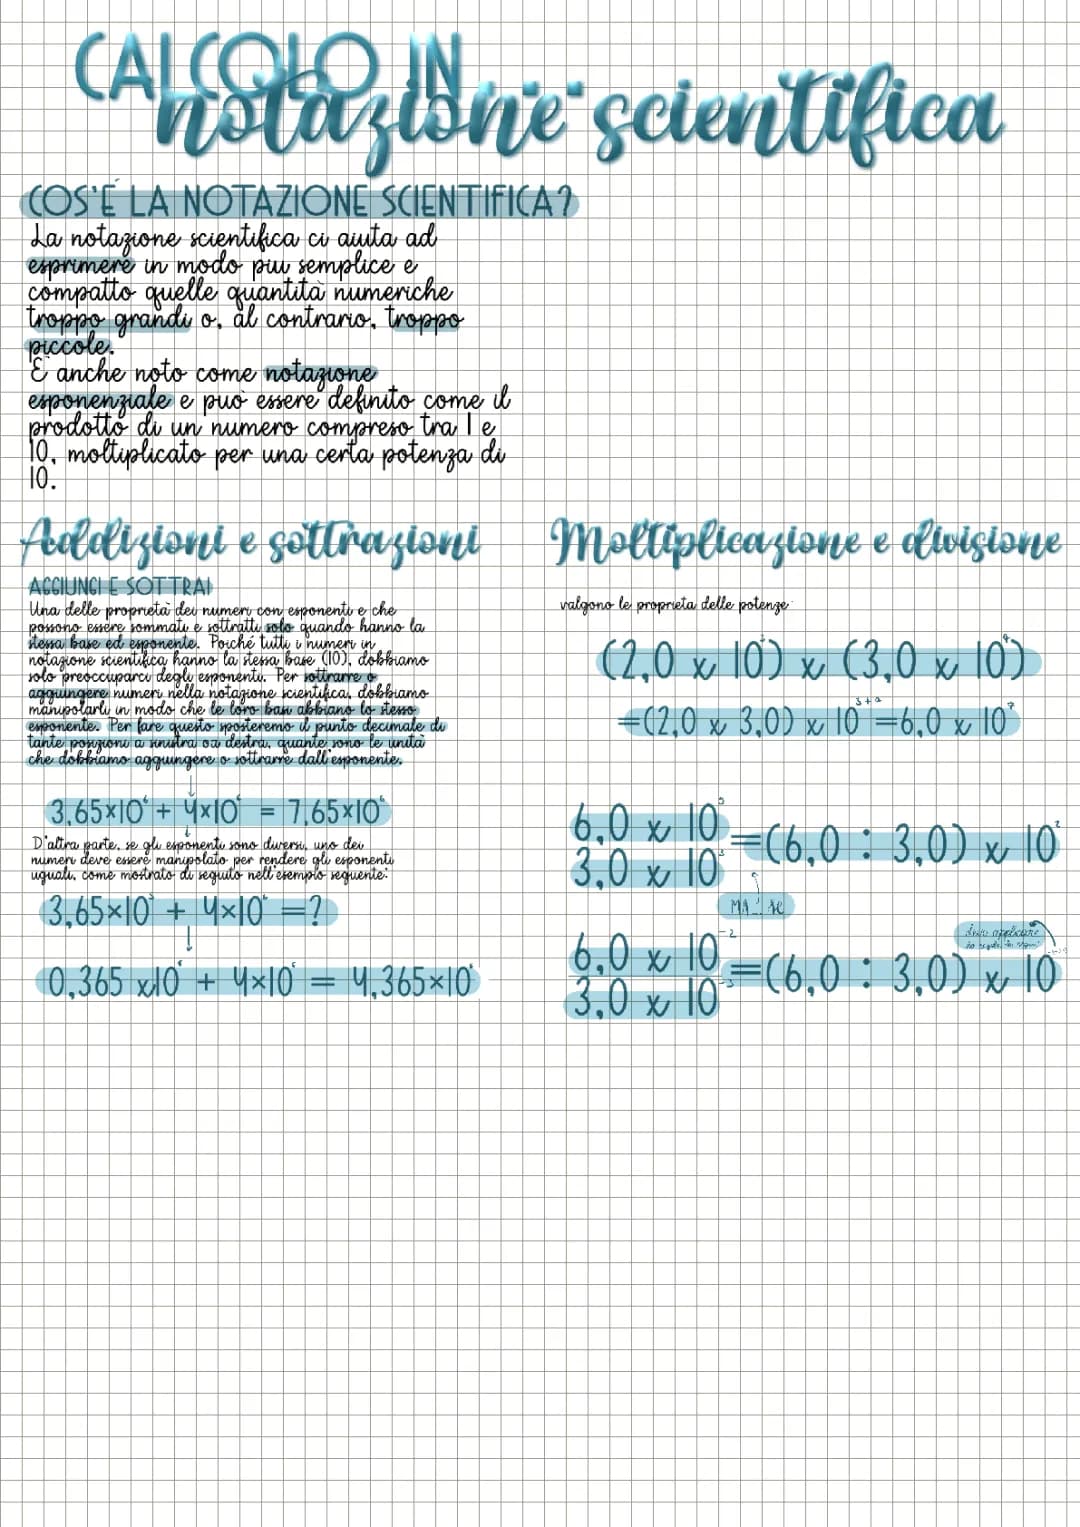 CALCOLO IN...
notazione scientifica
COS'É LA NOTAZIONE SCIENTIFICA?
La notazione scientifica ci aiuta ad
esprimere in modo piu semplice e
compatto quelle quantità numeriche
troppo grandi o, al contrario, troppo
piccole.
È anche noto come notazione
esponenziale e può essere definito come il
prodotto di un numero compreso tra 1 e
10, moltiplicato per una certa potenza di
10.
Addizioni e sottrazioni
AGGIUNGI E SOTTRAI
Una delle proprietà dei numeri con esponenti e che
possono essere sommati e sottratti solo quando hanno la
stessa base ed esponente. Poiché tutti i numeri in
notazione scientifica hanno la stessa base (10), dobbiamo
solo preoccuparci degli esponenti. Per sottrarre o
aggiungere numeri nella notazione scientifica, dobbiamo
manipolarli in modo che le loro basi abbiano lo stesso
esponente. Per fare questo sposteremo il punto decimale di
tante posizioni a sinistra o a destra, quante sono le unità
che dobbiamo aggiungere o sottrarre dall'esponente.
3,65×10⁶ + 4×10⁶ = 7,65×10⁶
D'altra parte, se gli esponenti sono diversi, uno dei
numeri deve essere manipolato per rendere gli esponenti
uguali, come mostrato di seguito nell'esempio seguente:
3,65×10 + 4×10 =?
0,365 x10 + 4×10 = 4,365×10
Moltiplicazione e divisione
valgono le proprieta delle potenze
(2,0 x 10³) x (3,0 x 10⁴)
=(2,0 x 3,0) x 10 =6,0 x 10⁷
6,0 x 10⁵ =(6,0 : 3,0) x 10²
3,0 x 10³
MA... se
6,0 x 10⁻² =(6,0 : 3,0) x 10
3,0 x 10⁻³
devo applicare